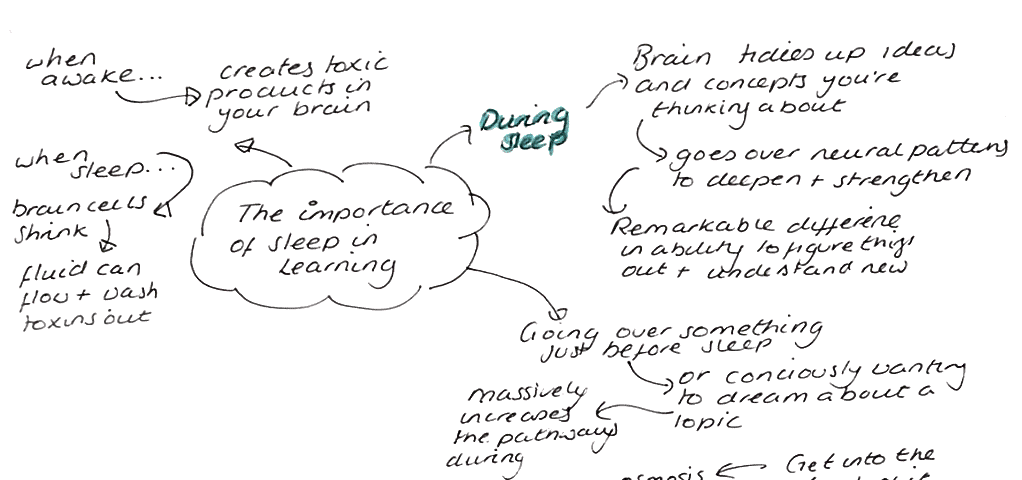 when
awake...
creates toxic
products in
your brain
when
sleep...
brain cells
shink
fluid can
flow + wash
toxins out
The importance
of sleep in
Learning
During
sleep
Brain tidies up ideas
and concepts you're
thinking about
goes over neural patterns
to deepen + strengthen
Remarkable difference
in ability to figure things
out + understand new
Going over something
just before sleep
or conciously wanting
to dream about a
topic
massively
increases
the pathways
during
osmosis
Get into the